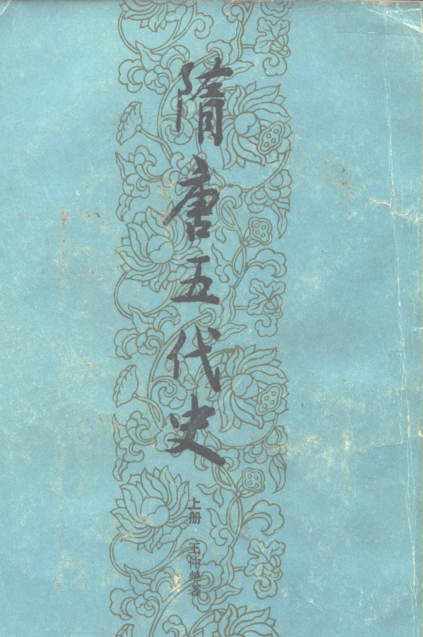 隋唐五代史
上册 王仲荦著